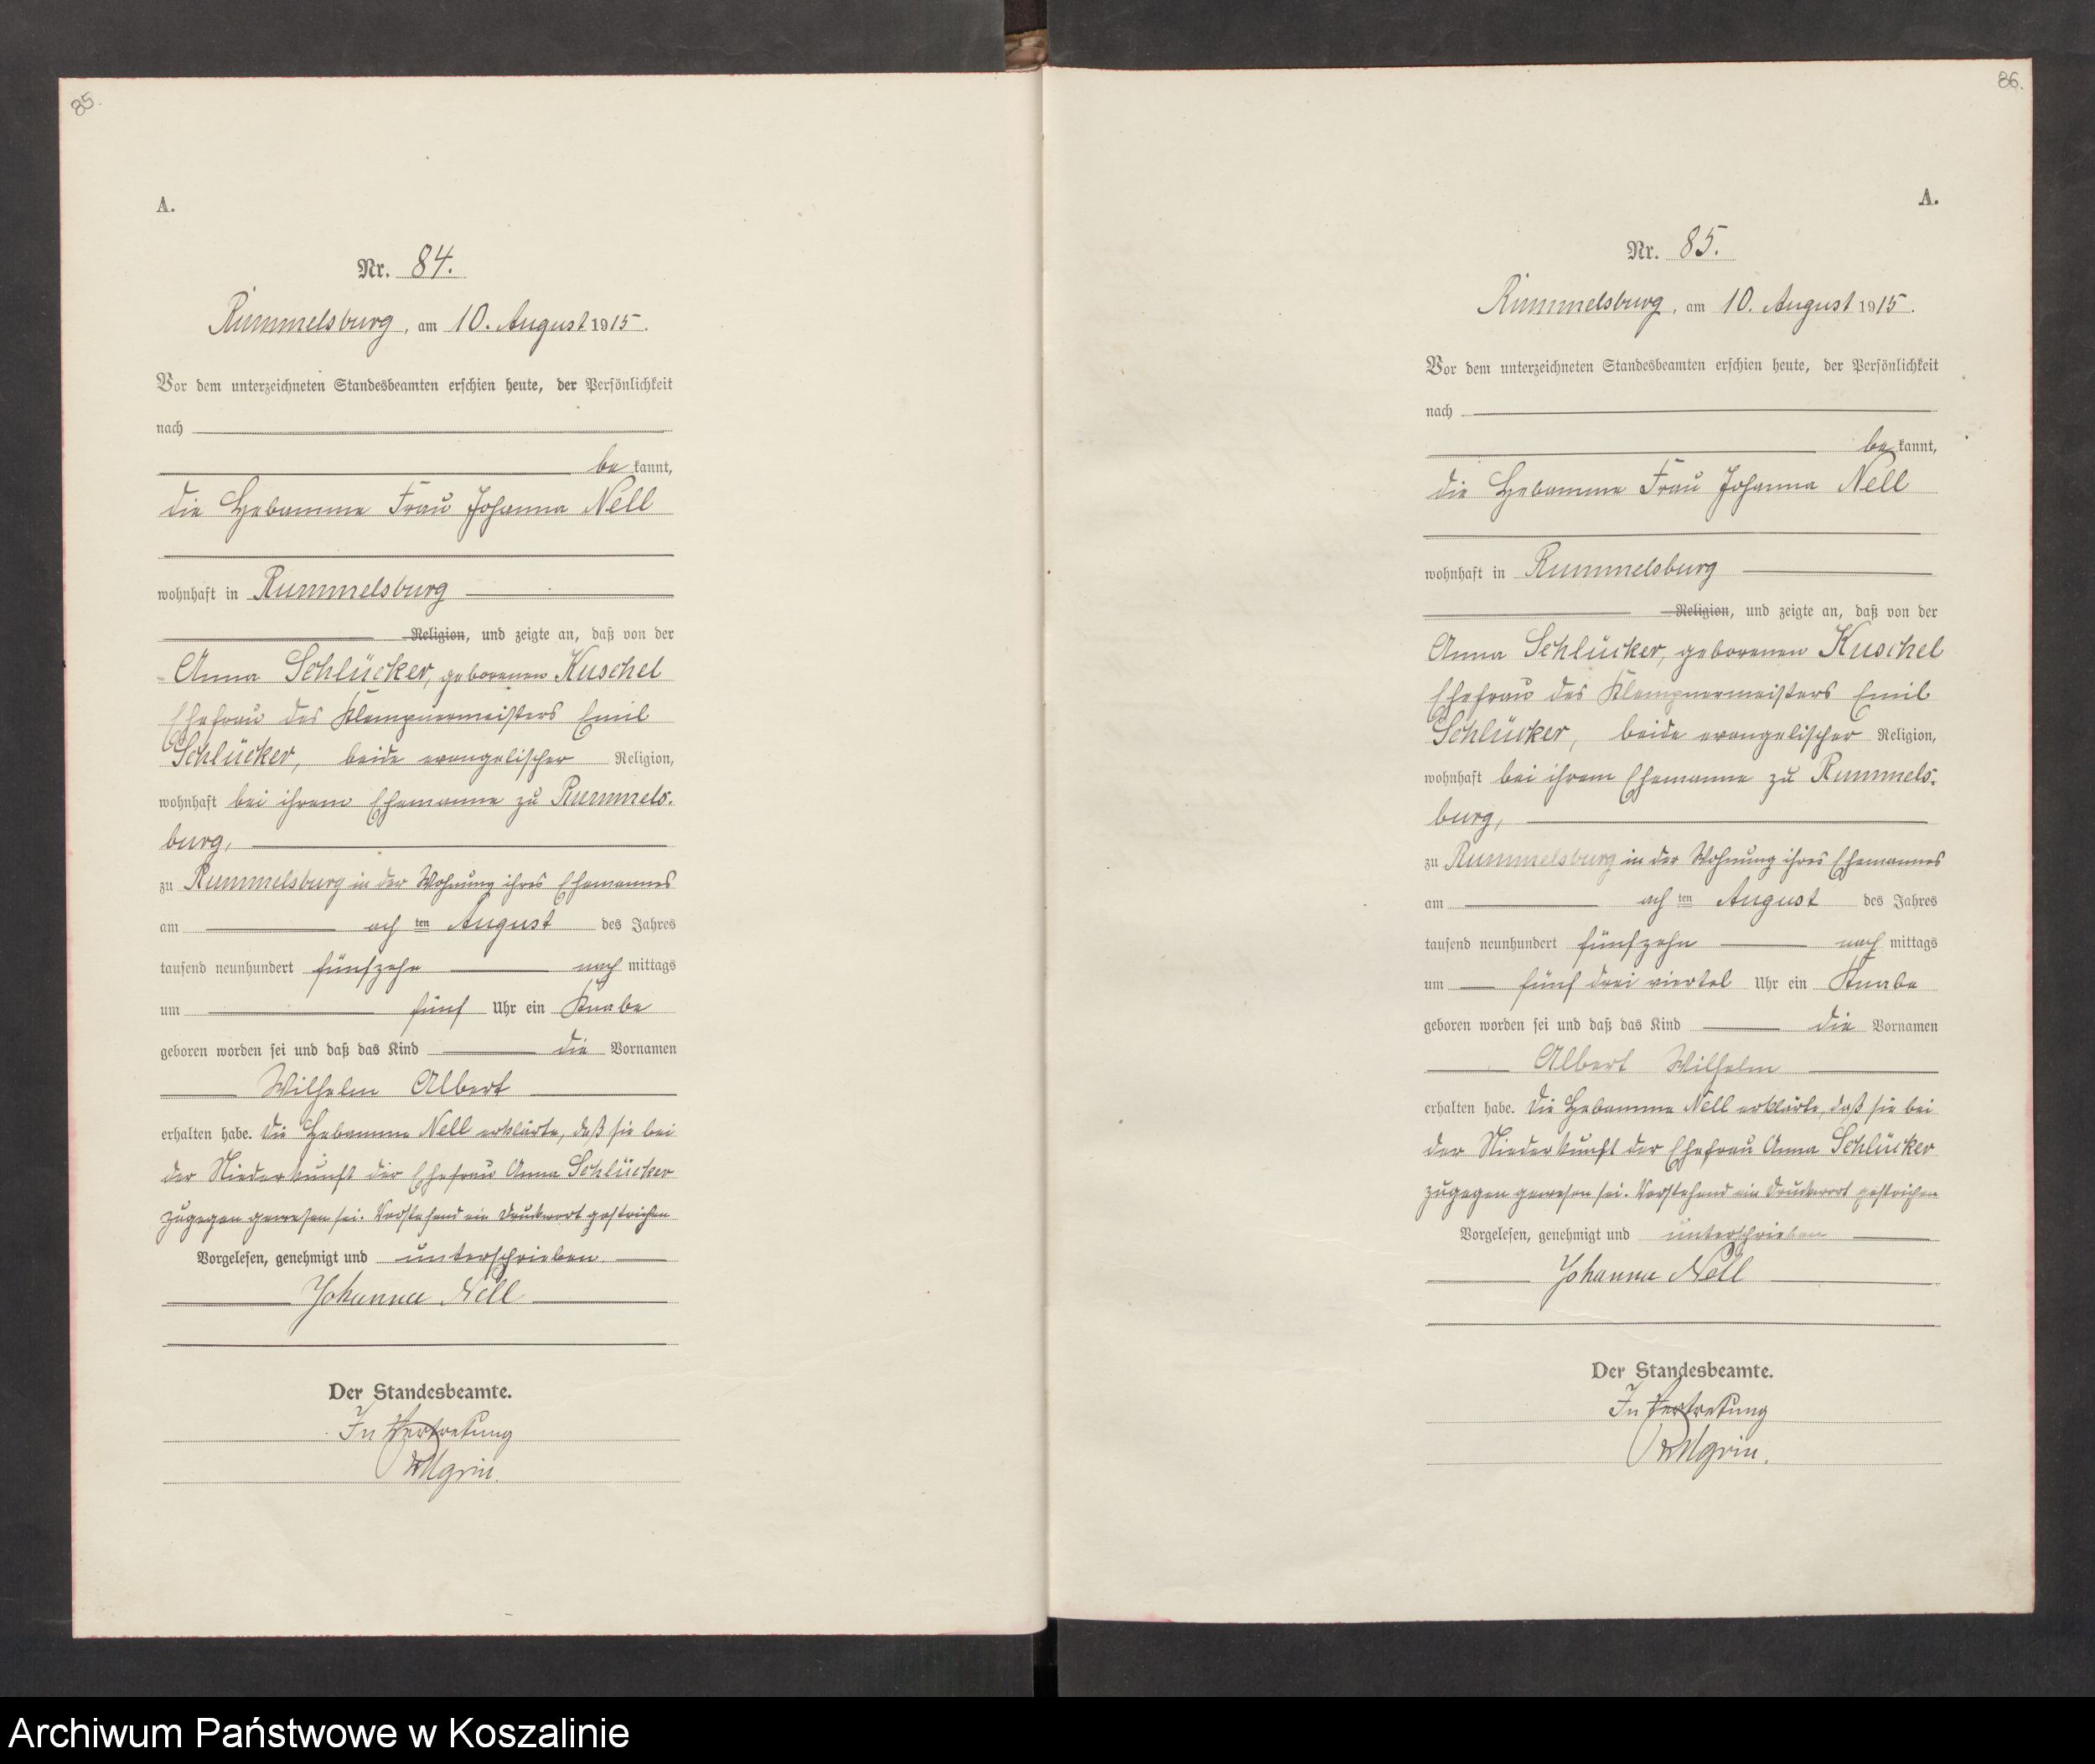 85.
A.
Nr. 84.
Rummelsburg, am 10. August 1915.
Vor dem unterzeichneten Standesbeamten erschien heute, der Persönlichkeit
nach
be kannt,
die Hebamme Frau Johanna Nell
wohnhaft in Rummelsburg
Religion, und zeigte an, daß von der
Anna Schlücker, geborenen Kuschel
Ehefrau des Klempnermeisters Emil
Schlücker, beide evangelischer Religion,
wohnhaft bei ihrem Ehemanne zu Rummels-
burg,
zu Rummelsburg in der Wohnung ihres Ehemannes
am ach ten August des Jahres
tausend neunhundert fünfzehn nach mittags
um fünf Uhr ein Knabe
geboren worden sei und daß das Kind die Vornamen
Wilhelm Albert
erhalten habe. Die Hebamme Nell erklärte, daß sie bei
der Niederkunft der Ehefrau Anna Schlücker
zugegen gewesen sei. Vorstehend ein Druckwort gestrichen
Vorgelesen, genehmigt und unterschrieben.
Johanna Nell
Der Standesbeamte.
In Vertretung
86.
A.
Nr. 85.
Rummelsburg, am 10. August 1915.
Vor dem unterzeichneten Standesbeamten erschien heute, der Persönlichkeit
nach
be kannt,
die Hebamme Frau Johanna Nell
wohnhaft in Rummelsburg
Religion, und zeigte an, daß von der
Anna Schlücker, geborenen Kuschel
Ehefrau des Klempnermeisters Emil
Schlücker, beide evangelischer Religion,
wohnhaft bei ihrem Ehemanne zu Rummels-
burg,
zu Rummelsburg in der Wohnung ihres Ehemannes
am ach ten August des Jahres
tausend neunhundert fünfzehn nach mittags
um fünf drei viertel Uhr ein Knabe
geboren worden sei und daß das Kind die Vornamen
Albert Wilhelm
erhalten habe. Die Hebamme Nell erklärte, daß sie bei
der Niederkunft der Ehefrau Anna Schlücker
zugegen gewesen sei. Vorstehend ein Druckwort gestrichen
Vorgelesen, genehmigt und unterschrieben
Johanna Nell
Der Standesbeamte.
In Vertretung
Archiwum Państwowe w Koszalinie